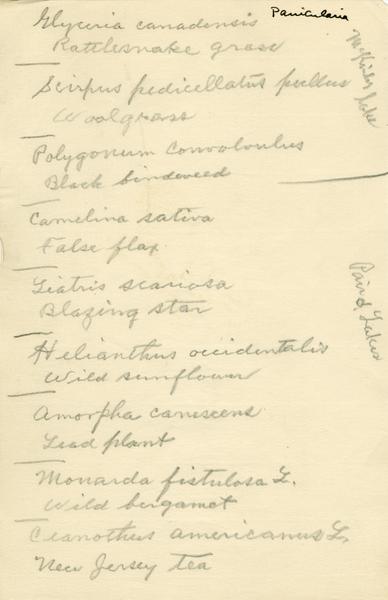 Glyceria canadensis Panicularia
Rattlesnake grass
Scirpus pedicellatus pullus
Woolgrass
Polygonum Convolvulus
Black bindweed
Camelina sativa
False flax
Liatris scariosa
Blazing star
Helianthus occidentalis
Wild sunflower
Amorpha canescens
Lead plant
Monarda fistulosa L.
Wild bergamot
Ceanothus americanus L.
New Jersey tea
Lake
Lakes